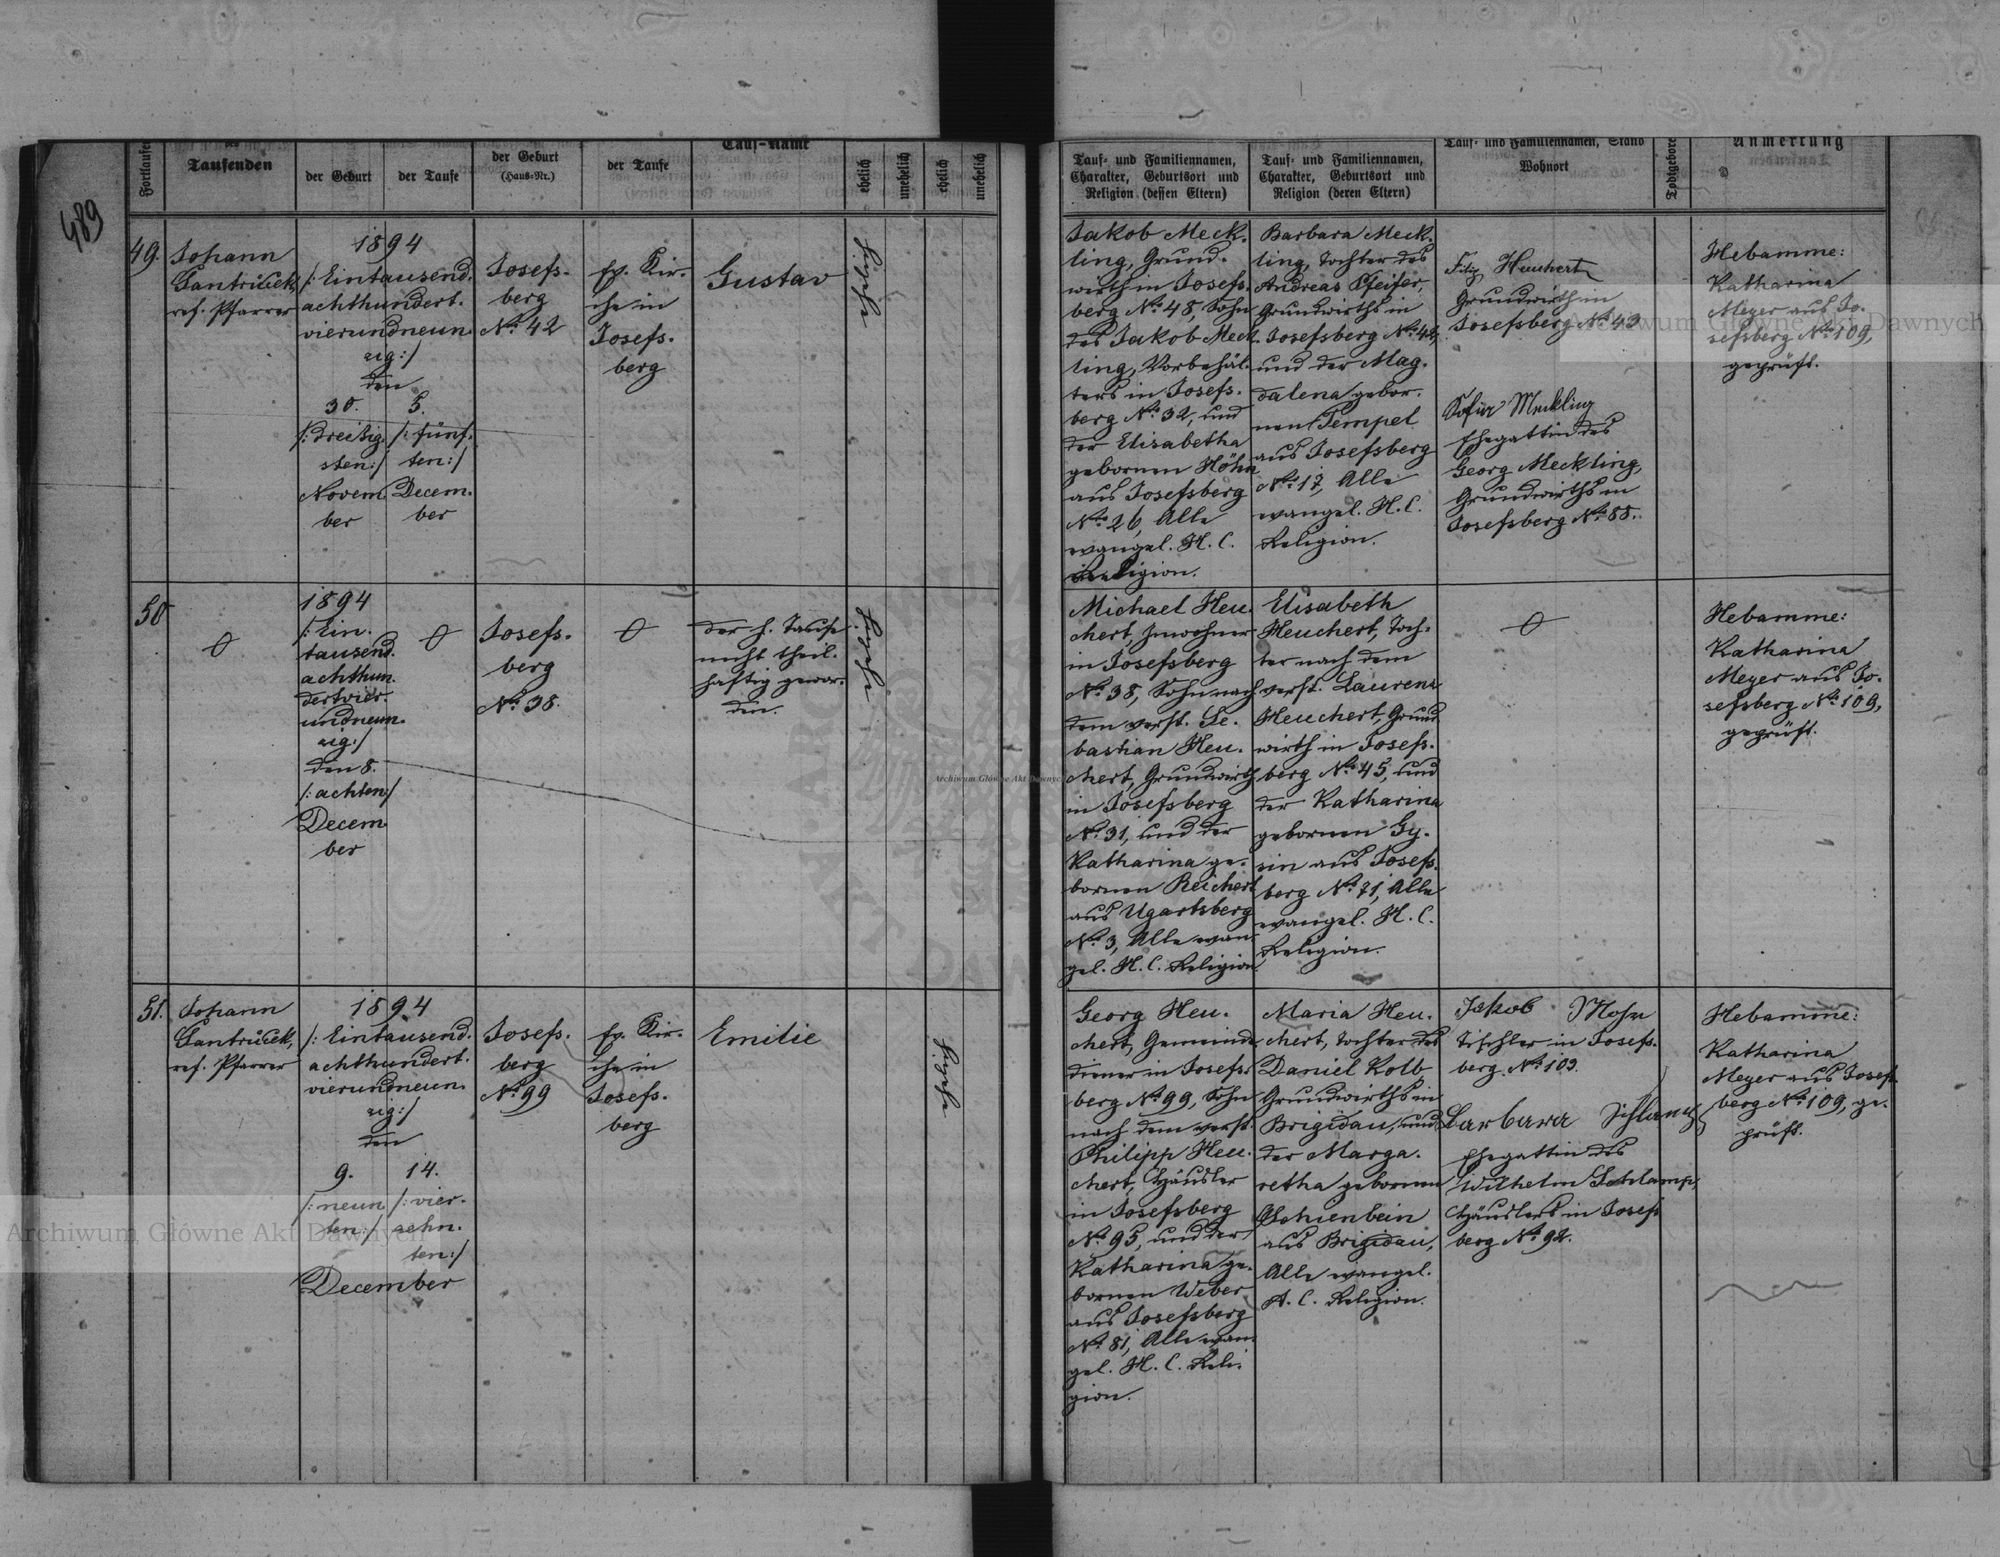 489
Fortlaufe
Taufenden
der Geburt
der Taufe
der Geburt
(Haus-Nr.)
der Taufe
Tauf-Name
ehelich
unehelich
ehelich
unehelich
Tauf- und Familiennamen,
Charakter, Geburtsort und
Religion (dessen Eltern)
Tauf- und Familiennamen,
Charakter, Geburtsort und
Religion (deren Eltern)
Tauf- und Familiennamen, Stand
Wohnort
Todtgebore
Anmerkung
49.
Johann
ref. Pfarrer
1894
/: Eintausend-
achthundert-
vierundneun-
zig :/
den
30.
/: dreißig-
sten :/
Novem-
ber
5.
/: fünf-
ten :/
Decem-
ber
Josefs-
berg
No. 42
Ev. Kir-
che in
Josefs-
berg
Gustav
Jakob Meck-
ling, Grund-
wirth in Josefs-
berg No. 48, Sohn
des Jakob Meck-
ling, Vorbehäl-
ters in Josefs-
berg No. 32, und
der Elisabetha
gebornen Höhn
aus Josefsberg
No. 26, Alle
evangel. H. C.
Religion.
Barbara Meck-
ling, Tochter des
Andreas Pfeifer,
Grundwirths in
Josefsberg No. 42,
und der Mag-
dalena gebor-
nen Tempel
aus Josefsberg
No. 17, Alle
evangel. H. C.
Religion.
Filip Heuchert
Grundwirth in
Josefsberg No. 43
Sofia Meckling
Ehegattin des
Georg Meckling,
Grundwirths in
Josefsberg No. 88.
Hebamme:
Katharina
Meyer aus Jo-
sefsberg No. 109,
geprüft.
50
1894
/: Ein-
tausend-
achthun-
dertvier-
undneun-
zig :/
den 8.
/: achten :/
Decem-
ber
Josefs-
berg
No. 38.
der h. Taufe
nicht theil-
haftig gewor-
den.
Michael Heu-
chert, Inwohner
in Josefsberg
No. 38, Sohn nach
dem verst. Se-
bastian Heu-
chert, Grundwirth
in Josefsberg
No. 31, und der
Katharina ge-
bornen Reichert
aus Ugartsberg
No. 3, Alle evan-
gel. H. C. Religion
Elisabeth
Heuchert, Toch-
ter nach dem
verst. Laurenz
Heuchert, Grund-
wirth in Josefs-
berg No. 45, und
der Katharina
gebornen Gy-
sin aus Josefs-
berg No. 71, Alle
evangel. H. C.
Religion.
Hebamme:
Katharina
Meyer aus Jo-
sefsberg No. 109,
geprüft.
51.
Johann
ref. Pfarrer
1894
/: Eintausend-
achthundert-
vierundneun-
zig :/
den
9.
/: neun-
ten :/
14.
/: vier-
zehn-
ten :/
December
Josefs-
berg
No. 99
Ev. Kir-
che in
Josefs-
berg
Emilie
Georg Heu-
chert, Gemeinde-
diener in Josefs-
berg No. 99, Sohn
nach dem verst.
Philipp Heu-
chert, Häusler
in Josefsberg
No. 95, und der
Katharina ge-
bornen Weber
aus Josefsberg
No. 81, Alle evan-
gel. H. C. Reli-
gion.
Maria Heu-
chert, Tochter des
Daniel Kolb
Grundwirths in
Brigidau, und
der Marga-
retha gebornen
Schienbein
aus Brigidau,
Alle evangel.
A. C. Religion.
Jakob Mohr
Tischler in Josefs-
berg No. 103.
Barbara Schlamp
Ehegattin des
Wilhelm Schlamp,
Häuslers in Josefs
berg No. 92.
Hebamme:
Katharina
Meyer aus Josefs-
berg No. 109, ge-
prüft.
Archiwum Główne Akt Dawnych
Archiwum Główne Akt Dawnych
Archiwum Główne Akt Dawnych